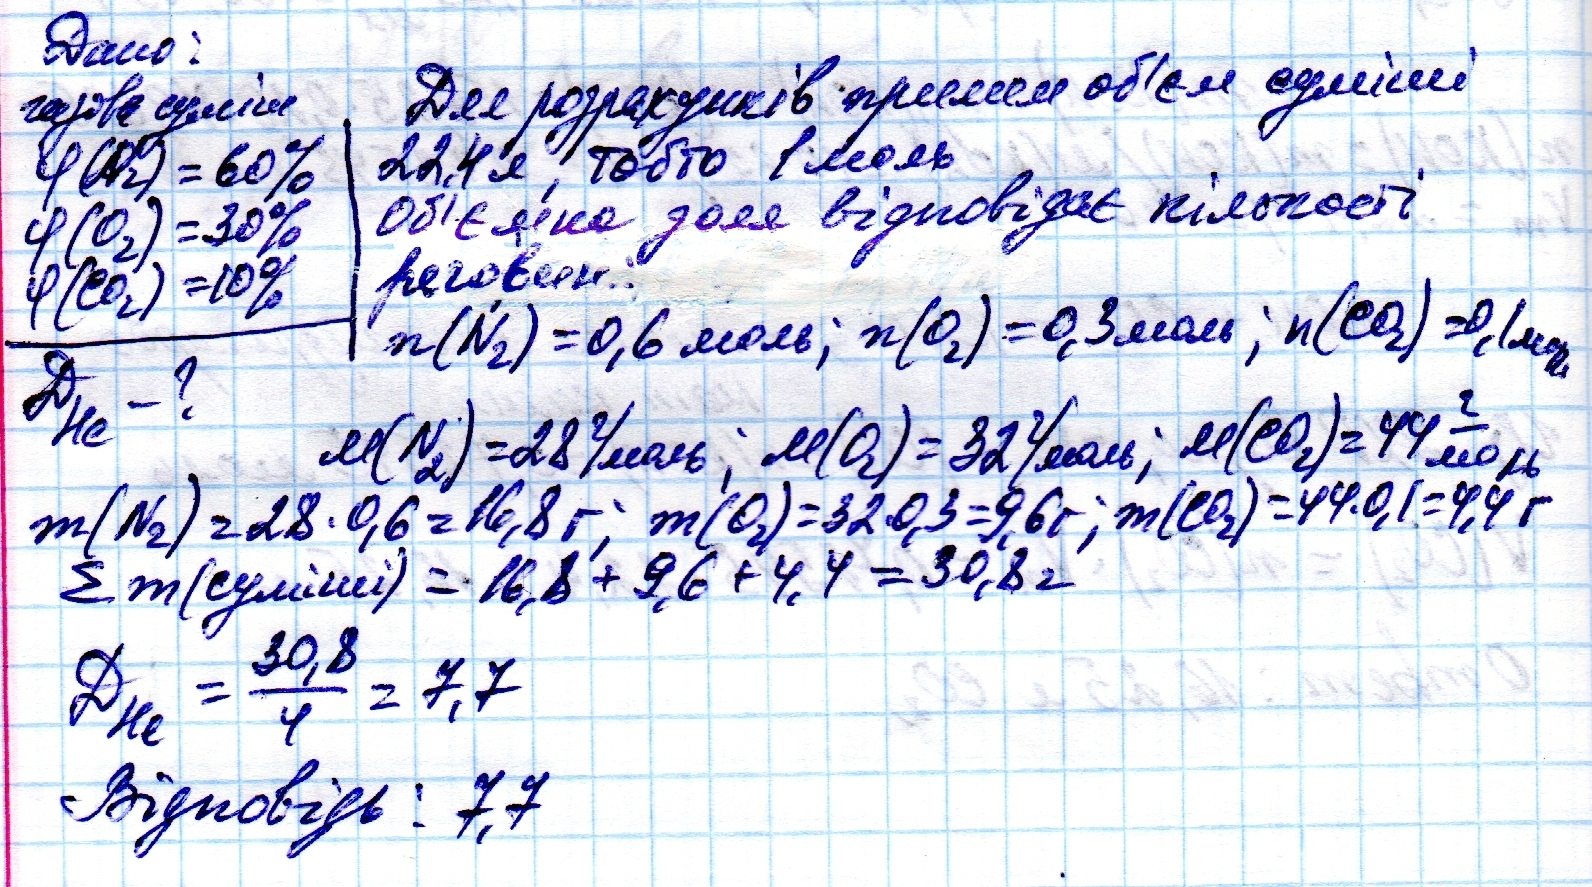 Дано:
газова суміш
φ(N₂) = 60%
φ(O₂) = 30%
φ(CO₂) = 10%
D_He – ?
Для розрахунків приймем об'єм суміші
22,4 л, тобто 1 моль
Об'ємна доля відповідає кількості
речовини:
n(N₂) = 0,6 моль; n(O₂) = 0,3 моль; n(CO₂) = 0,1 моль
M(N₂) = 28 г/моль; M(O₂) = 32 г/моль; M(CO₂) = 44 г/моль
m(N₂) = 28·0,6 = 16,8 г; m(O₂) = 32·0,3 = 9,6 г; m(CO₂) = 44·0,1 = 4,4 г
Σ m(суміші) = 16,8 + 9,6 + 4,4 = 30,8 г
D_He = 30,8/4 = 7,7
Відповідь: 7,7